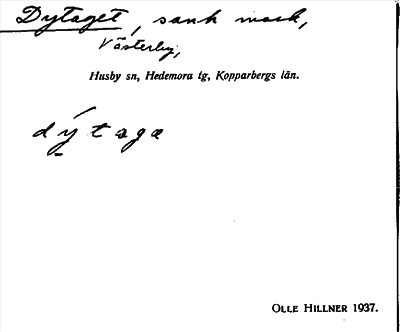 Dytaget, sank mark,
Västerby,
Husby sn, Hedemora tg, Kopparbergs län.
dýtaga
OLLE HILLNER 1937.